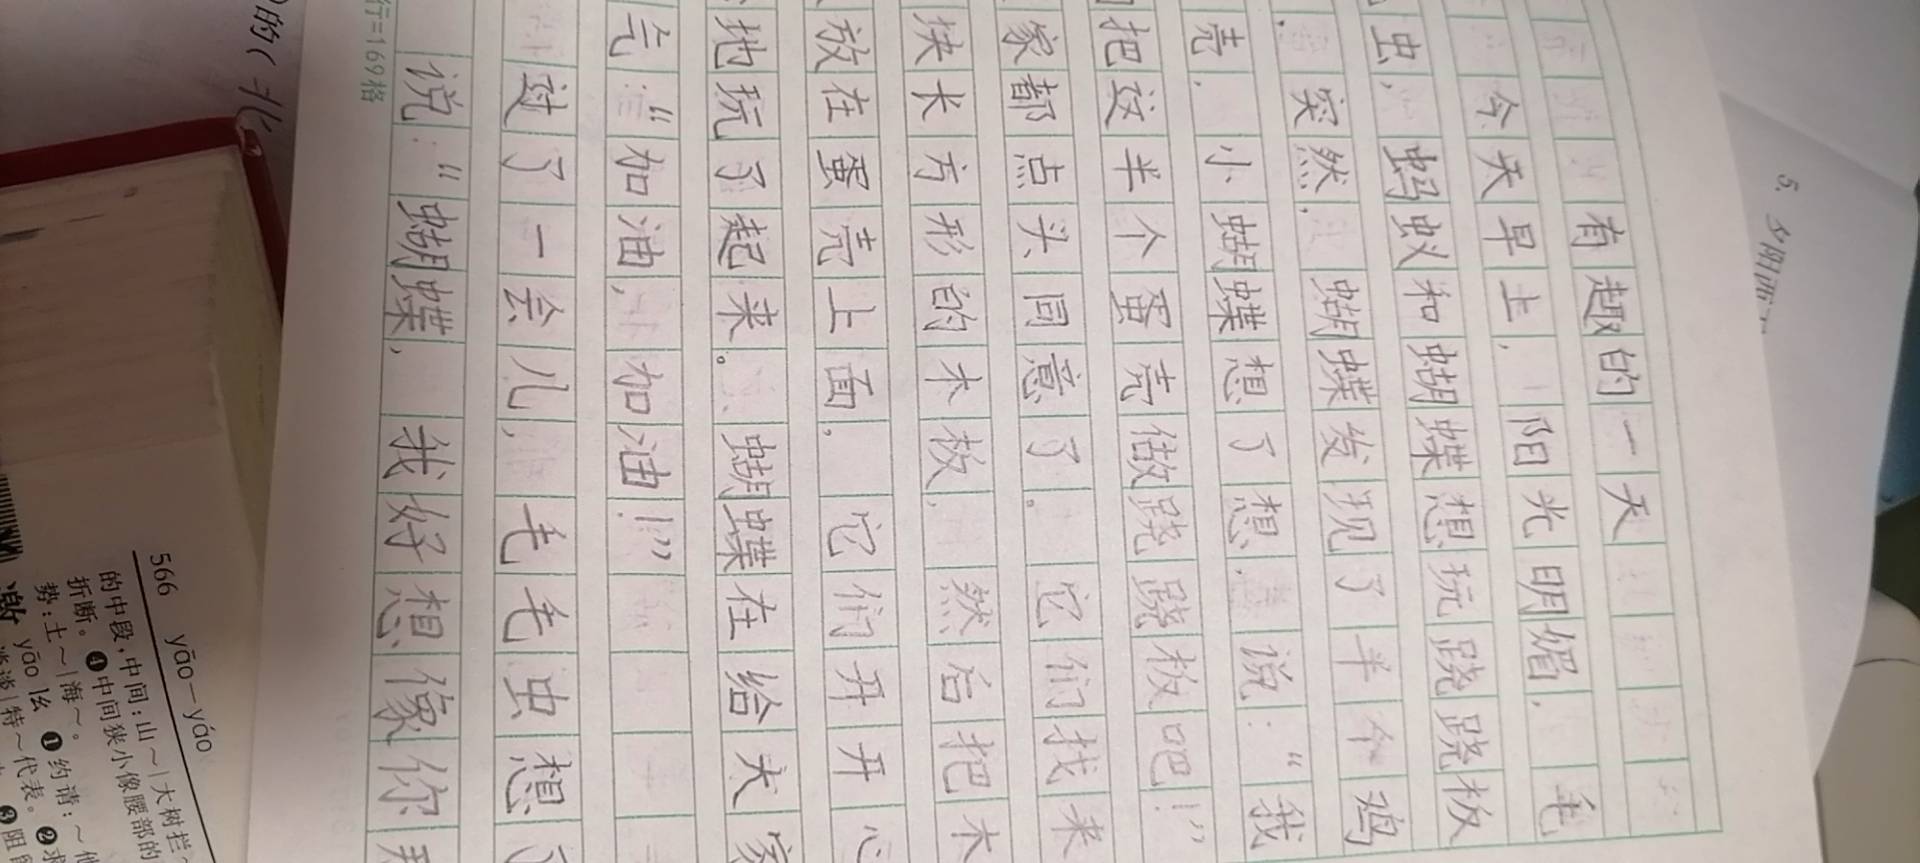 5. 夕阳西
有趣的一天
今天早上,阳光明媚,毛
虫,蚂蚁和蝴蝶想玩跷跷板
突然,蝴蝶发现了半个鸡
壳,小蝴蝶想了想,说:“我
把这半个蛋壳做跷跷板吧!”
家都点头同意了。它们找来
块长方形的木板,然后把木
放在蛋壳上面,它们开开心
地玩了起来。蝴蝶在给大家
气:“加油,加油!”
过了一会儿,毛毛虫想了
说:“蝴蝶,我好想像你
行=169格
的(
566 yāo—yáo
的中段,中间:山~|大树拦~
折断。❹中间狭小像腰部的
势:土~|海~。
邀 yāo ㄧㄠ ❶约请:~他 ❷求
特~代表。❸阻